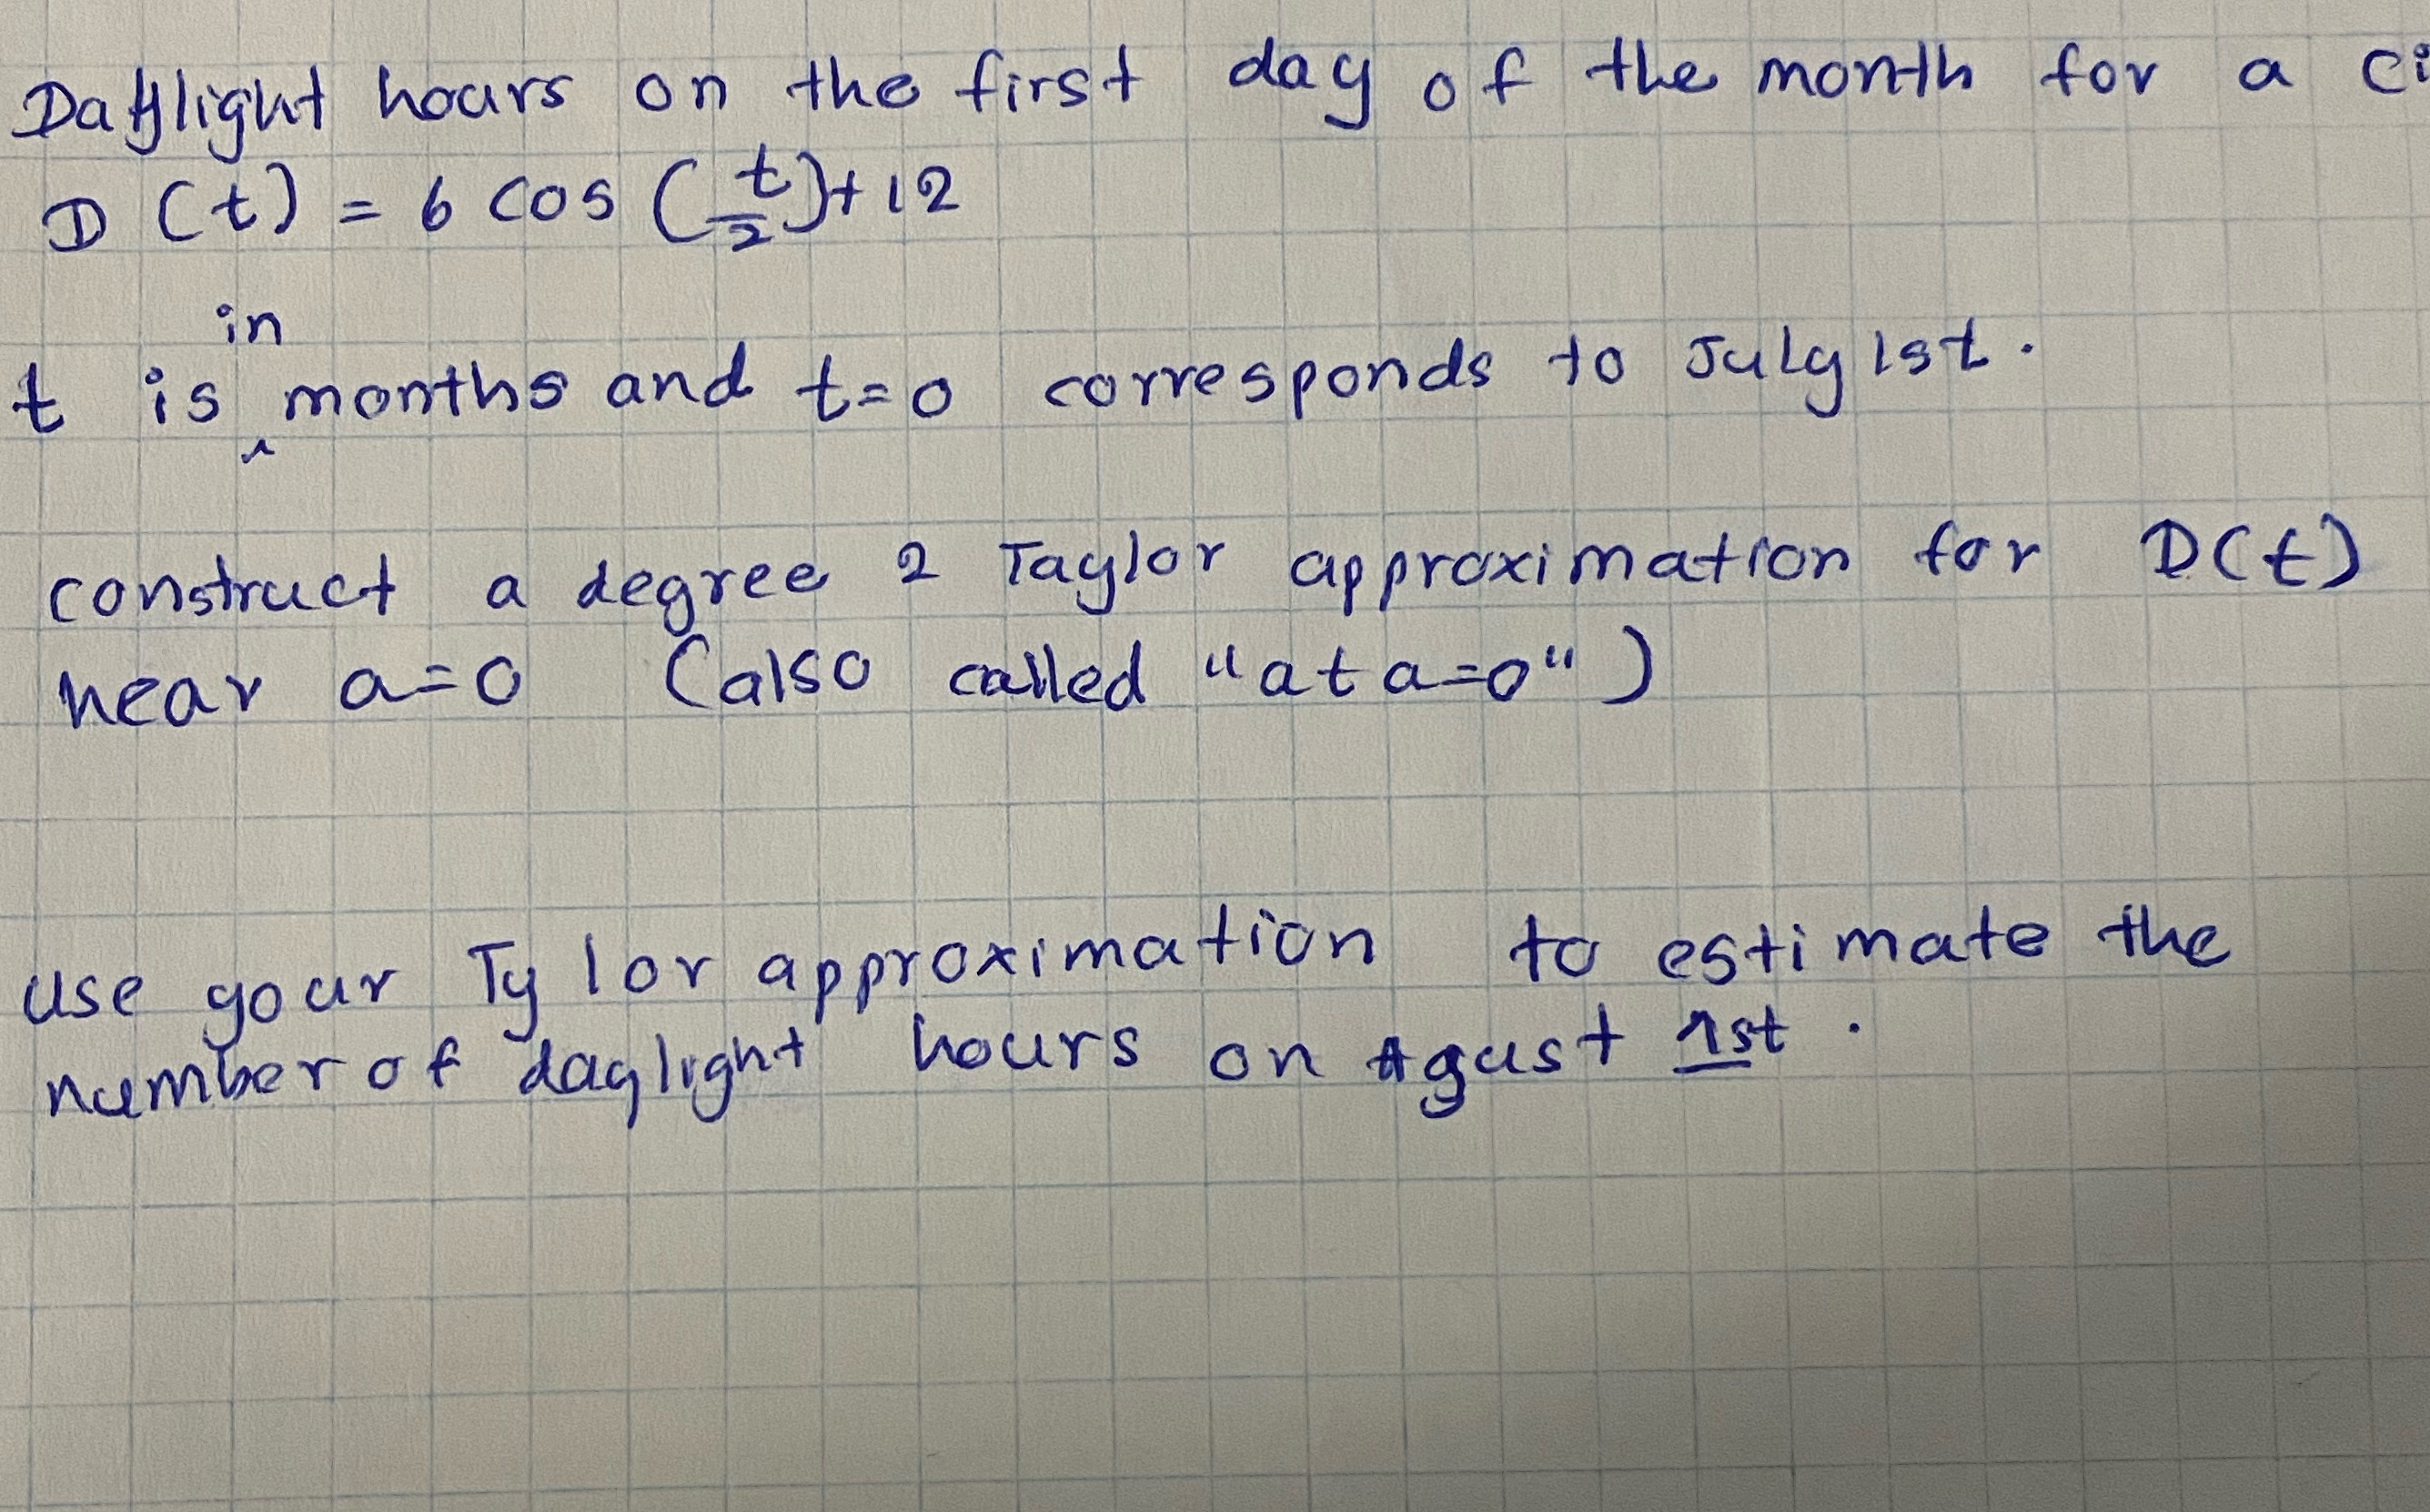 Daylight hours on the first day of the month for a ci
D (t) = 6 cos (t/2)+12
in
t is ^ months and t=0 corresponds to July 1st.
construct a degree 2 Taylor approximation for D(t)
near a=0 (also called "at a=0")
use your Tylor approximation to estimate the
number of daylight hours on Agust 1st.